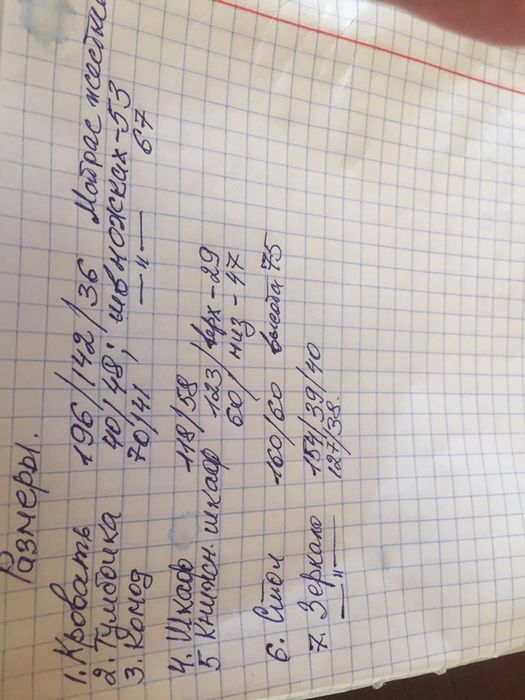 Размеры.
1. Кровать 196/142/36 Матрас жестки
2. Тумбочка 40/48; шв ножках - 53
3. Комод 70/41 —"— 67
4. Шкаф 118/58
5 Книжн. шкаф 123/верх - 29
60/низ - 47
6. Стол 160/60 высота 75
7. Зеркало 154/39/40
—"— 127/38.